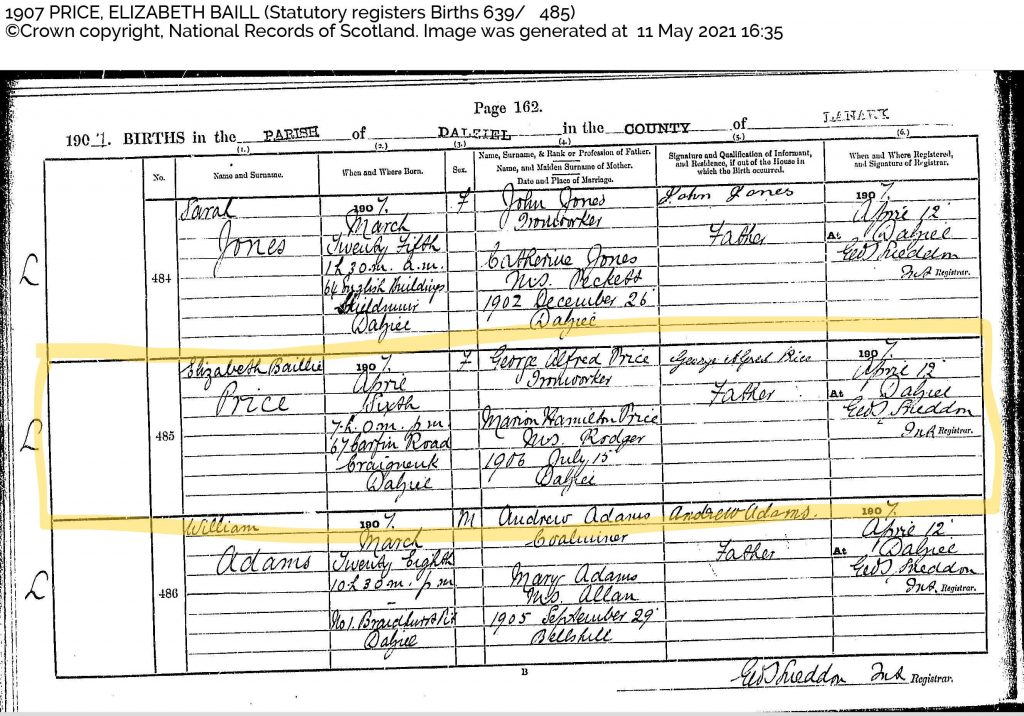 1907 PRICE, ELIZABETH BAILL (Statutory registers Births 639/ 485)
©Crown copyright, National Records of Scotland. Image was generated at 11 May 2021 16:35
Page 162.
1907. BIRTHS in the PARISH of DALZIEL in the COUNTY of LANARK
(1.) (2.) (3.) (4.) (5.) (6.)
No.
Name and Surname.
When and Where Born.
Sex.
Name, Surname, & Rank or Profession of Father.
Name, and Maiden Surname of Mother.
Date and Place of Marriage.
Signature and Qualification of Informant,
and Residence, if out of the House in
which the Birth occurred.
When and Where Registered,
and Signature of Registrar.
L
484
Sarah
Jones
1907.
March
Twenty Fifth
1 h. 30 m. a.m.
64 English Buildings
Shieldmuir
Dalziel
F
John Jones
Ironworker
Catherine Jones
M.S. Peckett
1902 December 26
Dalziel
John Jones
Father
1907.
April 12
At Dalziel
Geo. Sheddon
Registrar.
L
485
Elizabeth Baillie
Price
1907.
April
Sixth
7 h. 0 m. p.m.
67 Carfin Road
Craigneuk
Dalziel
F
George Alfred Price
Ironworker
Marion Hamilton Price
M.S. Rodger
1906 July 15
Dalziel
George Alfred Price
Father
1907.
April 12
At Dalziel
Geo. Sheddon
Registrar.
L
486
William
Adams
1907.
March
Twenty Eighth
10 h. 30 m. p.m.
No 1. Braidhurst Pit
Dalziel
M
Andrew Adams
Coalminer
Mary Adams
M.S. Allan
1905 September 29
Bellshill
Andrew Adams.
Father
1907.
April 12
At Dalziel
Geo. Sheddon
Registrar.
B
Geo. Sheddon Registrar.